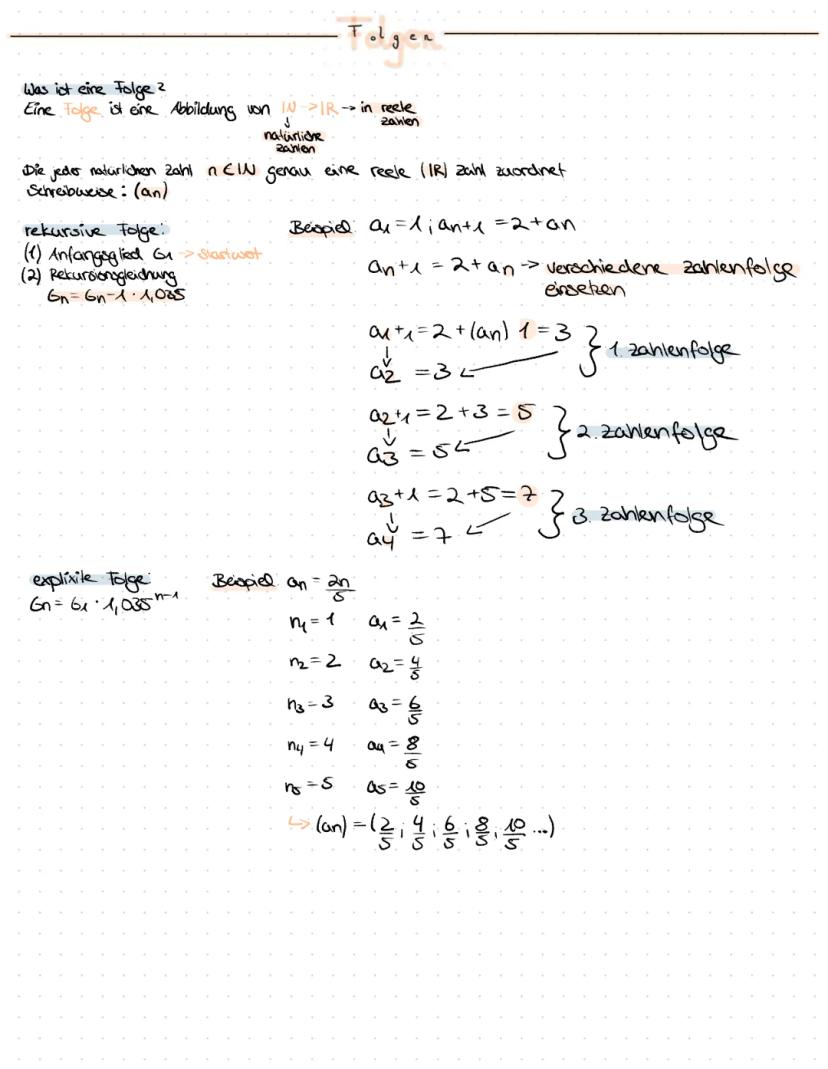 Folgen
Was ist eine Folge?
Eine Folge ist eine Abbildung von IN -> IR → in reele zahlen
↓
natürliche
zahlen
Die jeder natürlichen Zahl n ∈ IN genau eine reele (IR) Zahl zuordnet
Schreibweise: (an)
rekursive Folge:
(1) Anfangsglied G1 -> Startwert
(2) Rekursionsgleichung
Gn = Gn-1 · 1,035
Beispiel: a1 = 1 ; an+1 = 2 + an
an+1 = 2 + an -> verschiedene zahlenfolge
einsetzen
a1+1 = 2 + (an) 1 = 3
↓
a2 = 3
} 1. zahlenfolge
a2+1 = 2 + 3 = 5
↓
a3 = 5
} 2. zahlenfolge
a3+1 = 2 + 5 = 7
↓
a4 = 7
} 3. zahlenfolge
explixite Folge:
Gn = G1 · 1,035^n-1
Beispiel: an = 2n/5
n1 = 1 a1 = 2/5
n2 = 2 a2 = 4/5
n3 = 3 a3 = 6/5
n4 = 4 a4 = 8/5
n5 = 5 a5 = 10/5
↳ (an) = (2/5 ; 4/5 ; 6/5 ; 8/5 ; 10/5 ...)